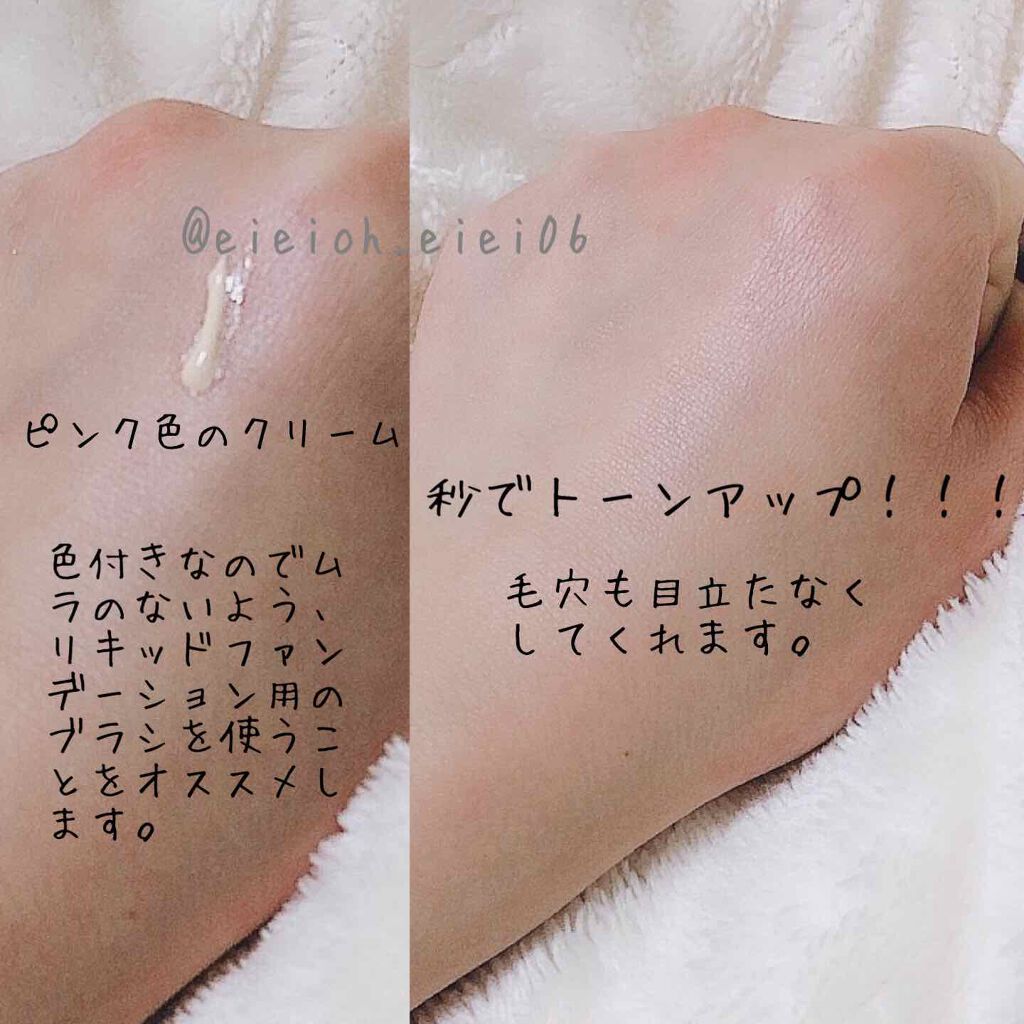 @eieioh_eiei06
ピンク色のクリーム
色付きなのでム
ラのないよう、
リキッドファン
デーション用の
ブラシを使うこ
とをオススメし
ます。
秒でトーンアップ！！！
毛穴も目立たなく
してくれます。